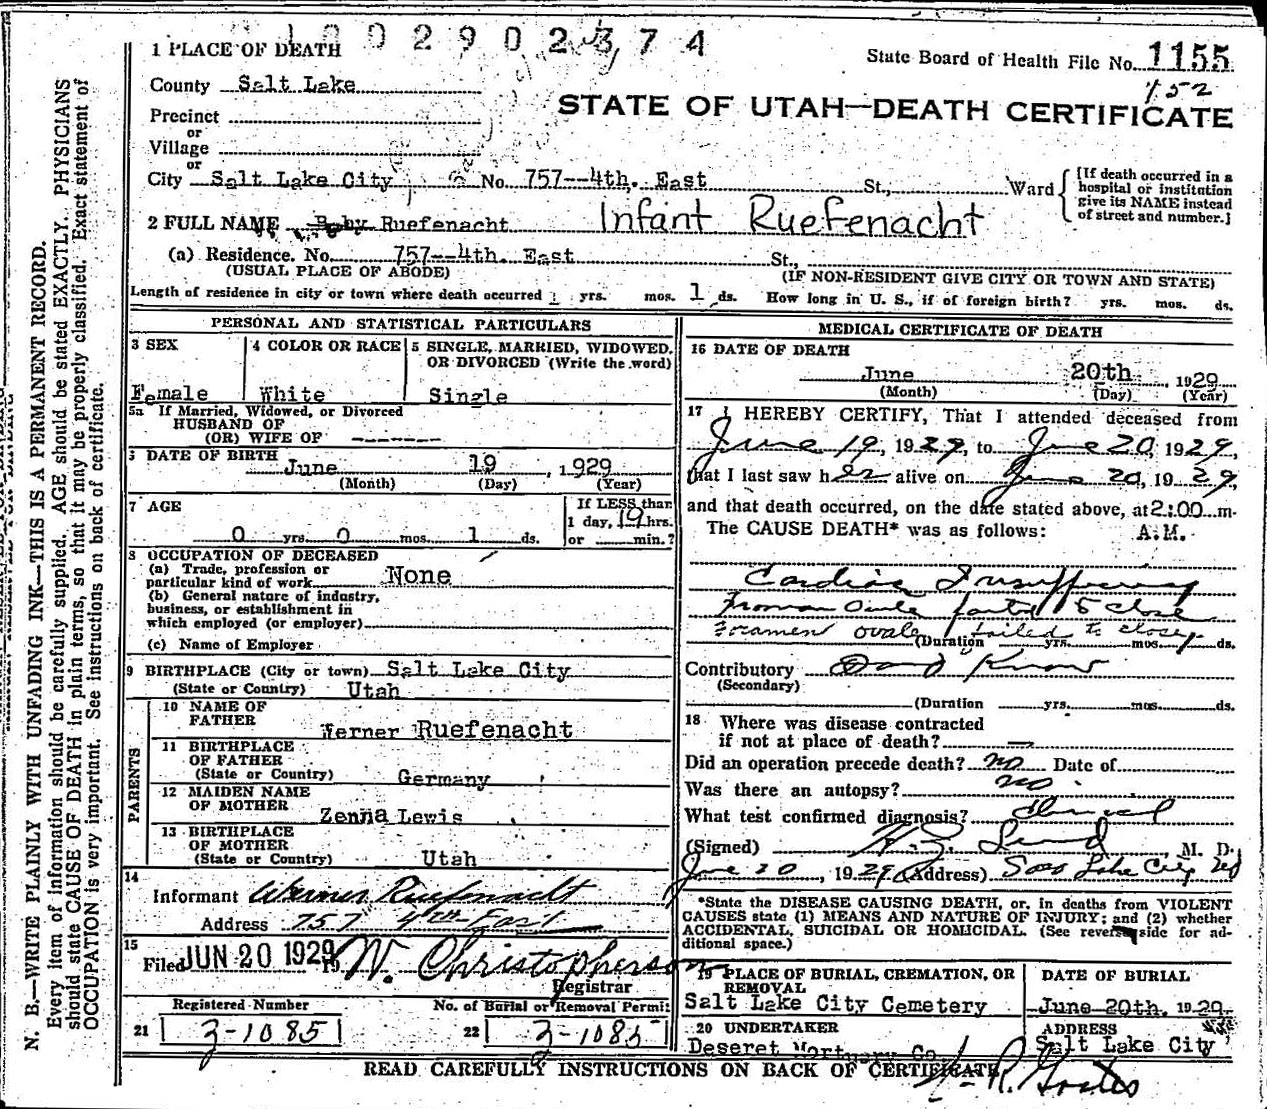 1002902374
1 PLACE OF DEATH
State Board of Health File No. 1155
152
County Salt Lake
STATE OF UTAH—DEATH CERTIFICATE
Precinct
or
Village
or
City Salt Lake City No. 757--4th. East St., Ward
[If death occurred in a hospital or institution give its NAME instead of street and number.]
2 FULL NAME Baby Ruefenacht Infant Ruefenacht
(a) Residence. No. 757--4th. East St.,
(USUAL PLACE OF ABODE) (IF NON-RESIDENT GIVE CITY OR TOWN AND STATE)
Length of residence in city or town where death occurred yrs. mos. 1 ds. How long in U. S., if of foreign birth? yrs. mos. ds.
PERSONAL AND STATISTICAL PARTICULARS
3 SEX
Female
4 COLOR OR RACE
White
5 SINGLE, MARRIED, WIDOWED, OR DIVORCED (Write the word)
Single
5a If Married, Widowed, or Divorced
HUSBAND OF
(OR) WIFE OF -------
6 DATE OF BIRTH
June 19, 1929
(Month) (Day) (Year)
7 AGE
0 yrs. 0 mos. 1 ds.
If LESS than
1 day, 19 hrs.
or min.?
8 OCCUPATION OF DECEASED
(a) Trade, profession or
particular kind of work None
(b) General nature of industry,
business, or establishment in
which employed (or employer)
(c) Name of Employer
9 BIRTHPLACE (City or town) Salt Lake City
(State or Country) Utah
PARENTS
10 NAME OF
FATHER
Werner Ruefenacht
11 BIRTHPLACE
OF FATHER
(State or Country) Germany
12 MAIDEN NAME
OF MOTHER
Zenna Lewis
13 BIRTHPLACE
OF MOTHER
(State or Country) Utah
14
Informant Werner Ruefenacht
Address 757 4th East
15
Filed JUN 20 1929 19 W. Christopherson
Registrar
Registered Number
21 3-1085
No. of Burial or Removal Permit
22 3-1085
MEDICAL CERTIFICATE OF DEATH
16 DATE OF DEATH
June 20th, 1929
(Month) (Day) (Year)
17 I HEREBY CERTIFY, That I attended deceased from
June 19, 1929, to June 20, 1929,
that I last saw her alive on June 20, 1929,
and that death occurred, on the date stated above, at 2:00 m.
The CAUSE DEATH* was as follows: A.M.
Cardiac Insufficiency
Foramen Ovale failed to close
Foramen ovale failed to close
(Duration yrs. mos. ds.
Contributory Dont Know
(Secondary)
(Duration yrs. mos. ds.
18 Where was disease contracted
if not at place of death? —
Did an operation precede death? no Date of
Was there an autopsy? no
What test confirmed diagnosis? clinical
(Signed) Lund, M. D.
June 20, 1929 (Address) Salt Lake City Ut
*State the DISEASE CAUSING DEATH, or, in deaths from VIOLENT
CAUSES state (1) MEANS AND NATURE OF INJURY; and (2) whether
ACCIDENTAL, SUICIDAL OR HOMICIDAL. (See reverse side for ad-
ditional space.)
19 PLACE OF BURIAL, CREMATION, OR
REMOVAL
Salt Lake City Cemetery
DATE OF BURIAL
June 20th, 1929
20 UNDERTAKER
Deseret Mortuary Co.
ADDRESS
Salt Lake City
READ CAREFULLY INSTRUCTIONS ON BACK OF CERTIFICATE
N. B.—WRITE PLAINLY WITH UNFADING INK—THIS IS A PERMANENT RECORD.
Every item of information should be carefully supplied. AGE should be stated EXACTLY. PHYSICIANS
should state CAUSE OF DEATH in plain terms, so that it may be properly classified. Exact statement of
OCCUPATION is very important. See instructions on back of certificate.